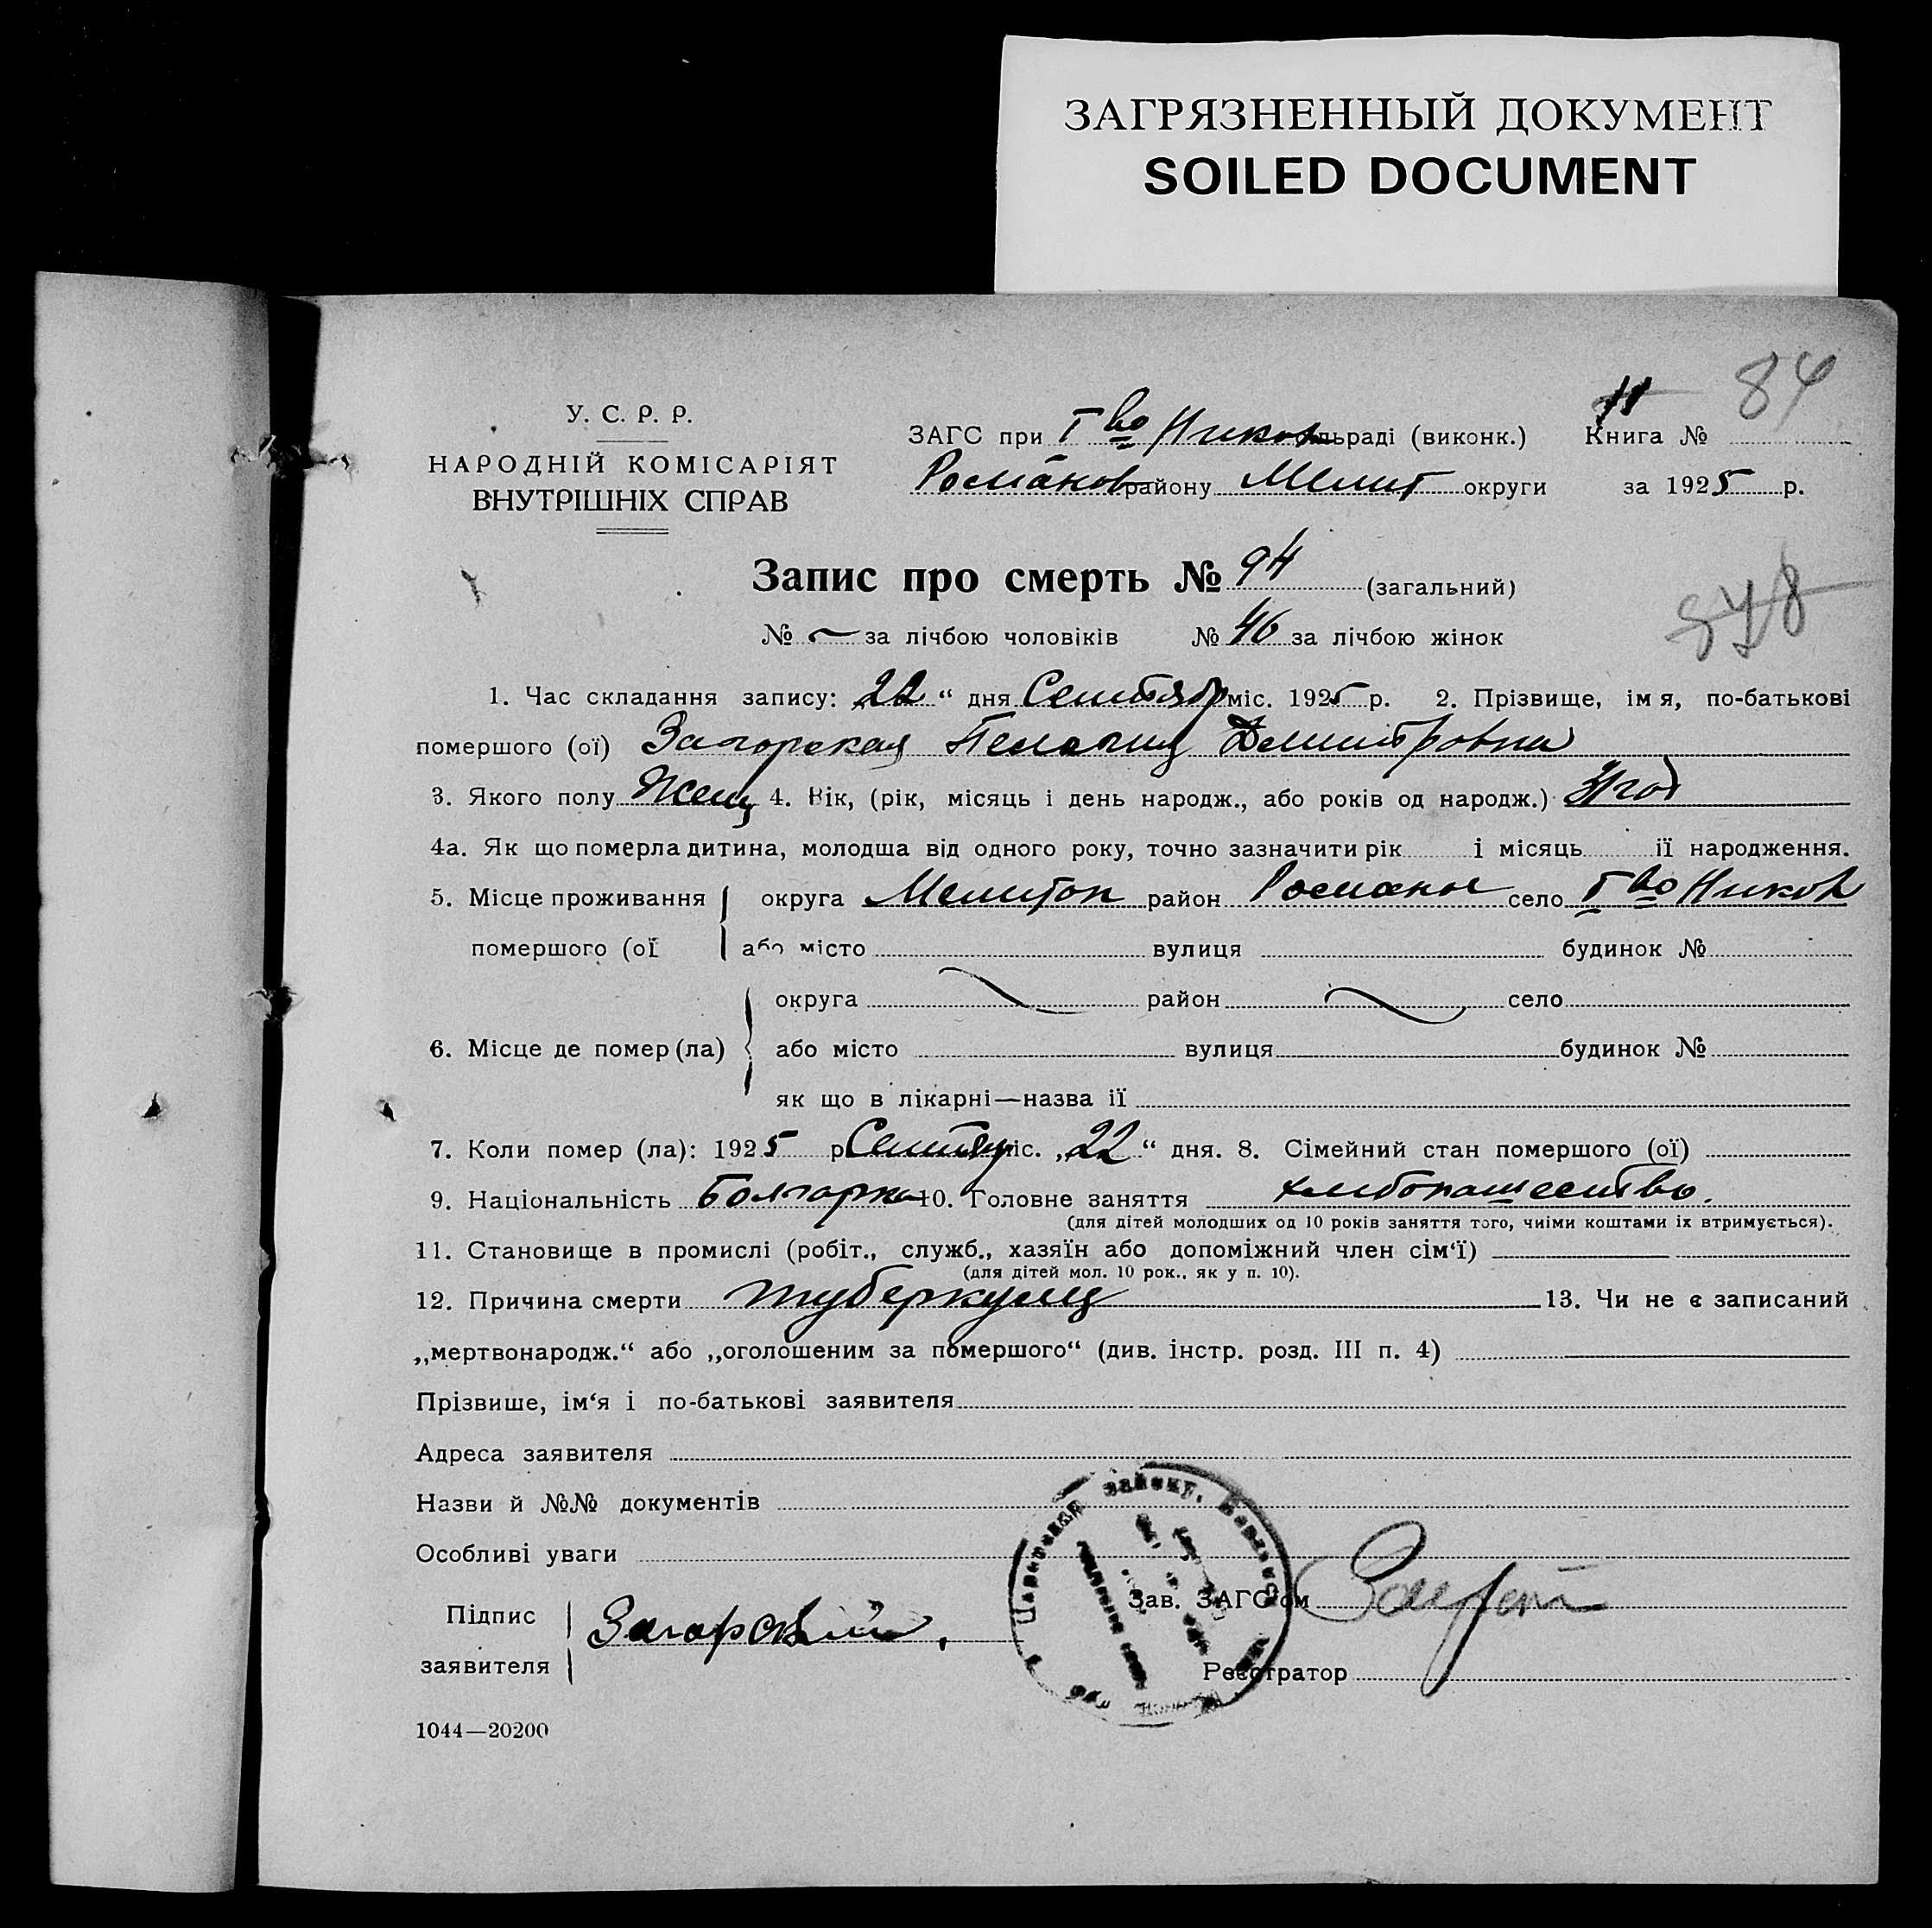 ЗАГРЯЗНЕННЫЙ ДОКУМЕНТ
SOILED DOCUMENT
84
У. С. Р. Р.
НАРОДНІЙ КОМІСАРІЯТ
ВНУТРІШНІХ СПРАВ
ЗАГС при I во Никол раді (виконк.) Книга № 11
Романов району Мелит округи за 1925 р.
Запис про смерть № 94 (загальний)
№ за лічбою чоловіків № 46 за лічбою жінок
1. Час складання запису: „22“ дня Сентябр міс. 1925 р. 2. Прізвище, ім я, по-батькові
помершого (ої) Загорская Пелагия Дмитровна
3. Якого полу Женщ 4. Вік, (рік, місяць і день народж., або років од народж.)
4а. Як що померла дитина, молодша від одного року, точно зазначити рік і місяць ії народження.
5. Місце проживання округа Мелитоп район Романов село I во Никол
помершого (ої або місто вулиця будинок №
округа район село
6. Місце де помер (ла) або місто вулиця будинок №
як що в лікарні—назва ії
7. Коли помер (ла): 1925 р Сентяб міс. „22“ дня. 8. Сімейний стан помершого (ої)
9. Національність Болгарка 10. Головне заняття хлебопашество.
(для дітей молодших од 10 років заняття того, чиіми коштами іх втримується).
11. Становище в промислі (робіт., служб., хазяїн або допоміжний член сім‘ї)
(для дітей мол. 10 рок., як у п. 10).
12. Причина смерти туберкулез 13. Чи не є записаний
„мертвонародж.“ або „оголошеним за помершого“ (див. інстр. розд. III п. 4)
Прізвише, ім‘я і по-батькові заявителя
Адреса заявителя
Назви й №№ документів
Особливі уваги
Зав. ЗАГС‘ом
Підпис
заявителя Загорский.
Реєстратор
1044—20200